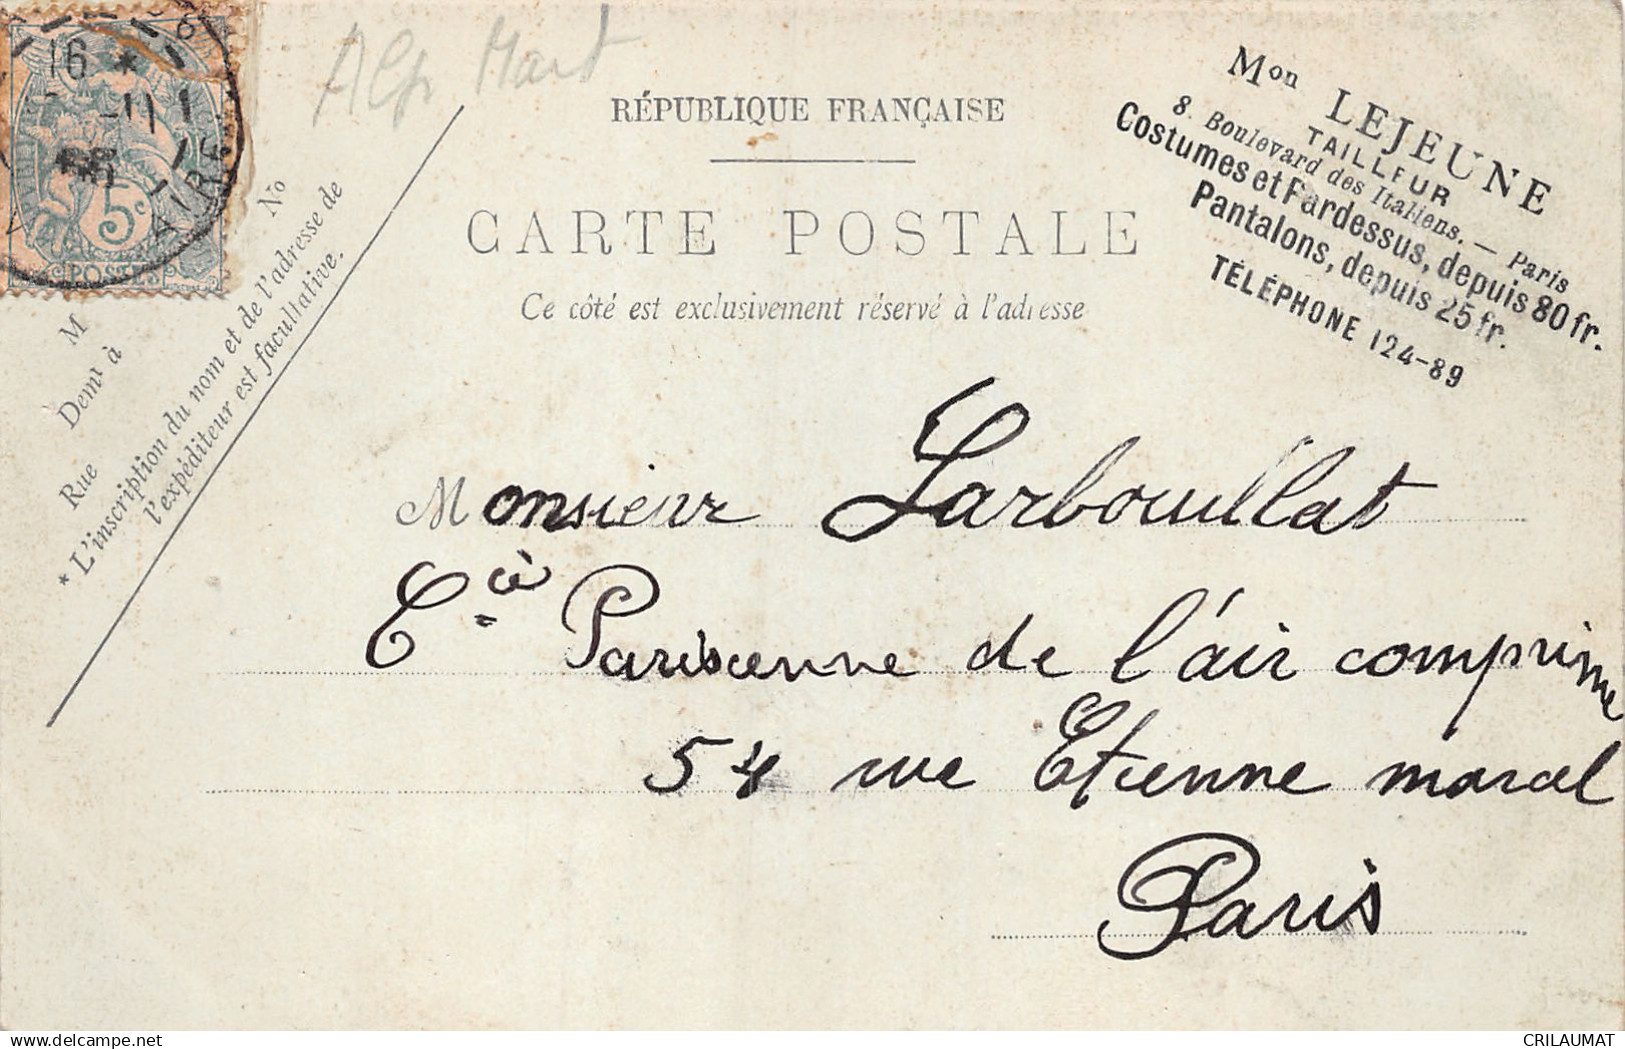 Alp Mart
RÉPUBLIQUE FRANÇAISE
CARTE POSTALE
Ce côté est exclusivement réservé à l'adresse
Mon LEJEUNE
TAILLEUR
8. Boulevard des Italiens. — Paris
Costumes et Pardessus, depuis 80 fr.
Pantalons, depuis 25 fr.
TÉLÉPHONE 124-89
16 *
5c
POSTES
M
No
Demt à
Rue
* L'inscription du nom et de l'adresse de
l'expéditeur est facultative.
Monsieur Larbouillat
Cie Parisienne de l'air comprime
54 rue Etienne marcel
Paris
delcampe.net
CRILAUMAT